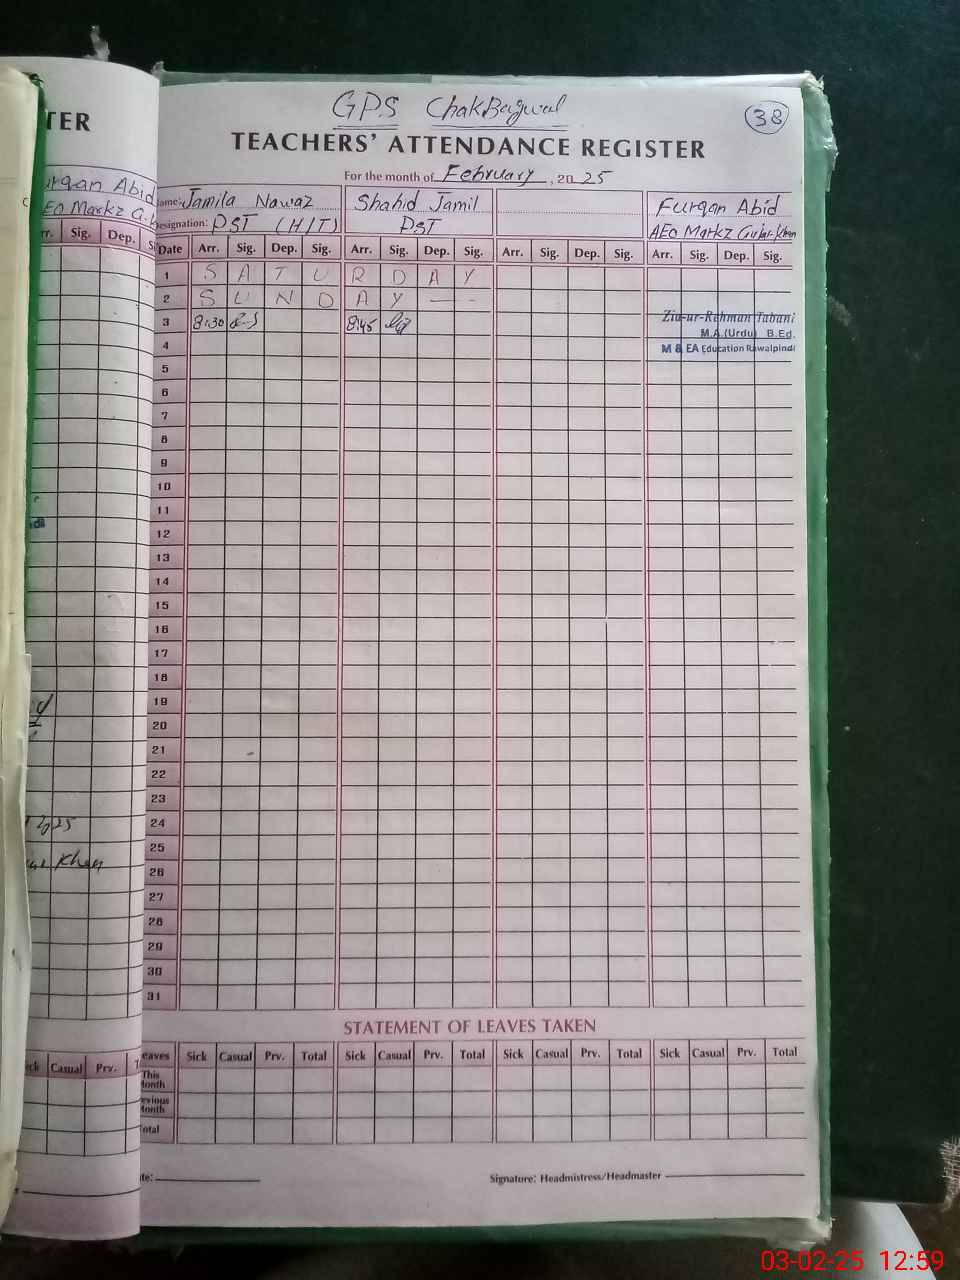 TER
Abid
EO Markz G.K
rr. Sig. Dep. S
2025
Khan
ck Casual Prv. T
GPS ChakBagwal
38
TEACHERS' ATTENDANCE REGISTER
For the month of February, 2025
ame: Jamila Nawaz Shahid Jamil Furqan Abid
Designation: PST (H/T) PST AEO Markz Gujar Khan
Date Arr. Sig. Dep. Sig. Arr. Sig. Dep. Sig. Arr. Sig. Dep. Sig. Arr. Sig. Dep. Sig.
1 S A T U R D A Y
2 S U N D A Y — -
3 8:30 8:45
Zia-ur-Rehman Tabani
M.A.(Urdu) B.Ed.
M & EA Education Rawalpindi
4
5
6
7
8
9
10
11
12
13
14
15
16
17
18
19
20
21
22
23
24
25
26
27
28
29
30
31
STATEMENT OF LEAVES TAKEN
eaves Sick Casual Prv. Total Sick Casual Prv. Total Sick Casual Prv. Total Sick Casual Prv. Total
This
Month
evious
Month
otal
te:
Signature: Headmistress/Headmaster
03-02-25 12:59